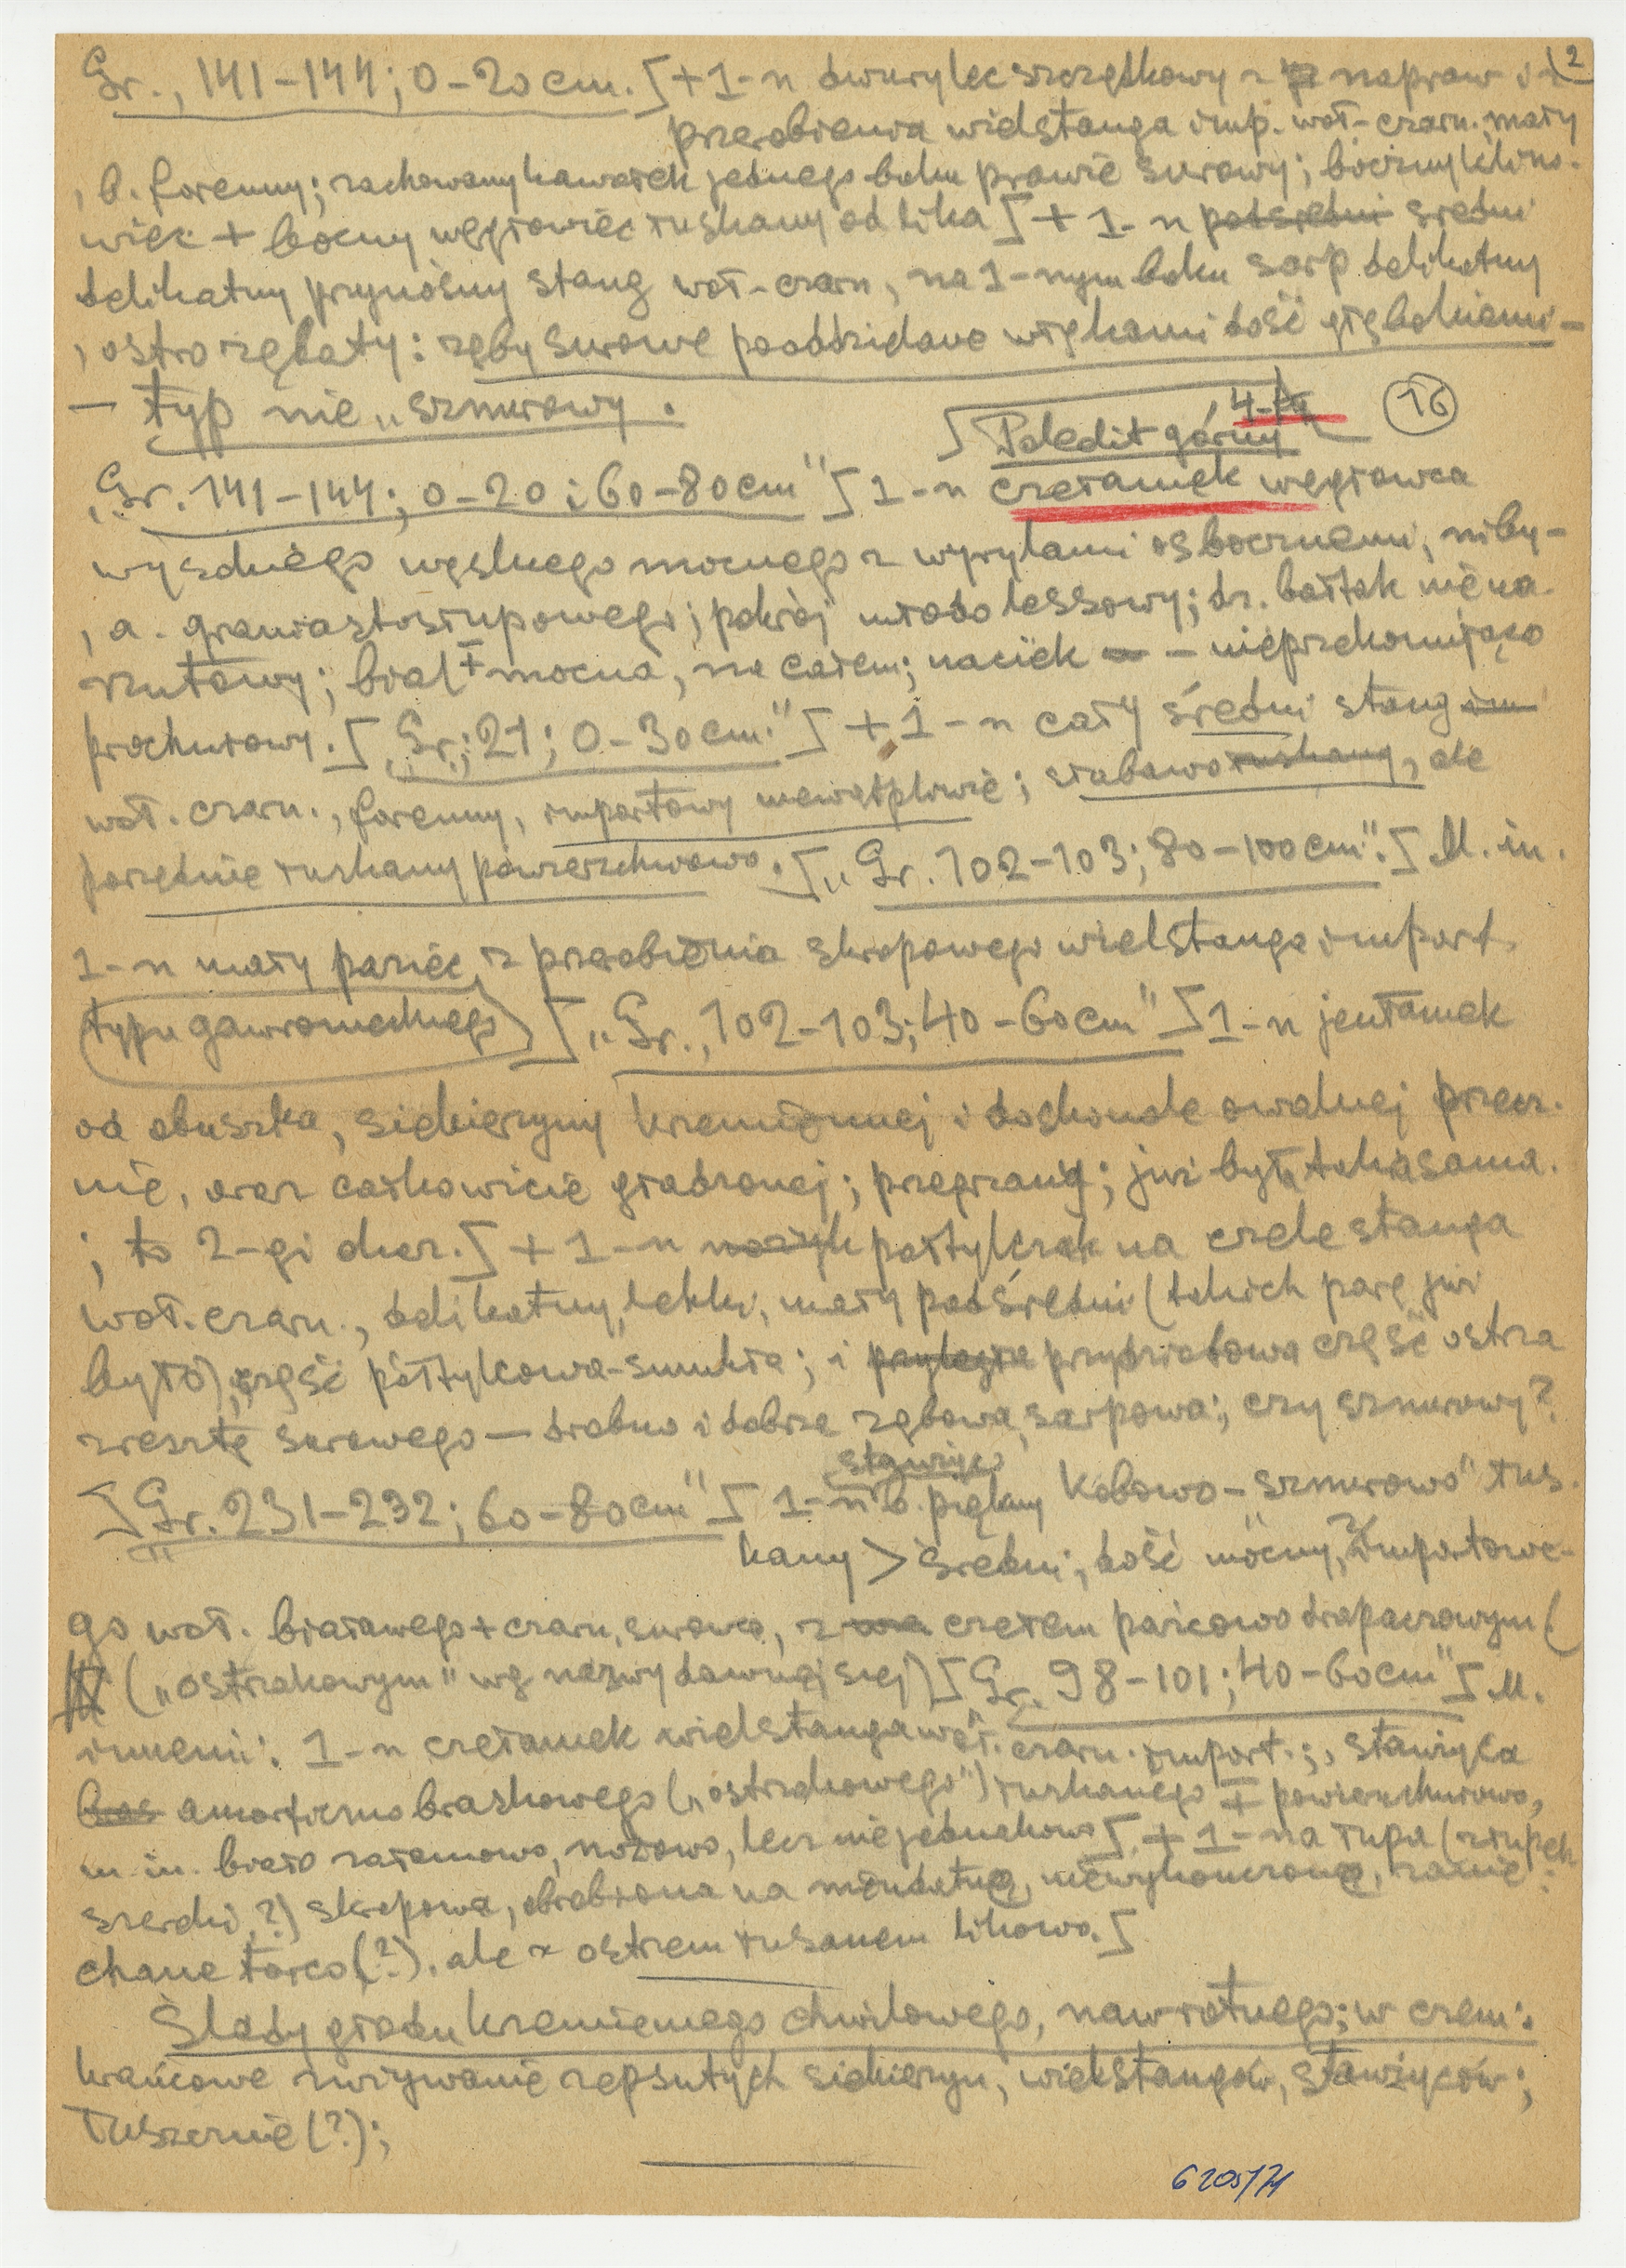 2
Gr., 141–144; 0–20 cm. ∫ + 1-n dwurylec szczątkowy z napraw i z
przerobienia wielstanga imp. woł-czarn.; mały
, b. foremny; zachowany kawałek jednego boku prawie surowy; boczny klino-
wiec + boczny węgłowiec łuskany od lika ∫ + 1-n pośredni średni
delikatny przynośny stang woł-czarn, na 1-nym boku sarp delikatny
, ostro zębaty: zęby surowe pooddzielane wrękami dość głębokiemi –
– typ nie „sznurowy.
∫ Poledit górny 4-ty 16
„Gr. 141–144; 0–20 i 60–80 cm" ∫ 1-n czełamek węgłowca
wysokiego wąskiego mocnego z wyrylami os bocznemi, niby-
, a. graniastosłupowego; pokrój młodo lessowy; dr. bałtek niena
rzutowy; biał ∓ mocna, na całem; naciek – nieprzekonująco
prochurowy. ∫ „Gr.; 21; 0–30 cm." ∫ + 1-n cały średni stang im
woł. czarn., foremny, importowy niewątpliwie; słabawo łuskany, ale
porządnie łuskany powierzchniowo. ∫ „Gr. 102–103; 80–100 cm". ∫ M. in.
1-n mały paziec z przerobienia skropowego wielstanga import.
typu gawronieckiego ∫ „Gr., 102–103; 40–60 cm" ∫ 1-n jenłamek
od obuszka, siekierzyny krzemiennej i doskonale owalnej przecz-
nie, oraz całkowicie gładzonej; przegrzanej; już była taka sama.
; to 2-gi okaz. ∫ + 1-n nożyk półtylczak na czele stanga
woł. czarn., delikatny, lekki, mały pośredni (takich parę już
było), część półtylcowa smukła; i przyległa przydziałowa część ostrza
zresztą surowego – drobno i dobrze zębowa, sarpowa; czy sznurowy?
∫ „Gr. 231–232; 60–80 cm" ∫ 1-n b. piękny stawzyec kobowo-sznurowo" łus.
kany > średni; dość mocny, z importowe-
go woł. białawego + czarn. surowca, z czełem pazcowo drapaczowym (
(„ostrzakowym" wg nazwy dawniejszej) ∫ Gr. 98–101; 40–60 cm" ∫ M.
innemi: 1-n czełamek wielstanga woł. czarn. import.; stawzyca
amorficzno braskowego („ostrzakowego") łuskanego ∓ powierzchniowo,
m. in. biało załamowo, nożowo, lecz niejednakowo ∫ + 1-na łupa (z łupek
szerokı,?) skrpowa, obrobiona na mendałue, niewykończone, zanie-
chane tarco(?), ale z ostrzem łuskanem likowo. ∫
Ślady głodu krzemiennego chwilowego, nawrotnego; w czem:
krańcowe zużywanie zepsutych siekierzyn, wielstangów, stawzyców;
Tuszernie (?);
6205/71